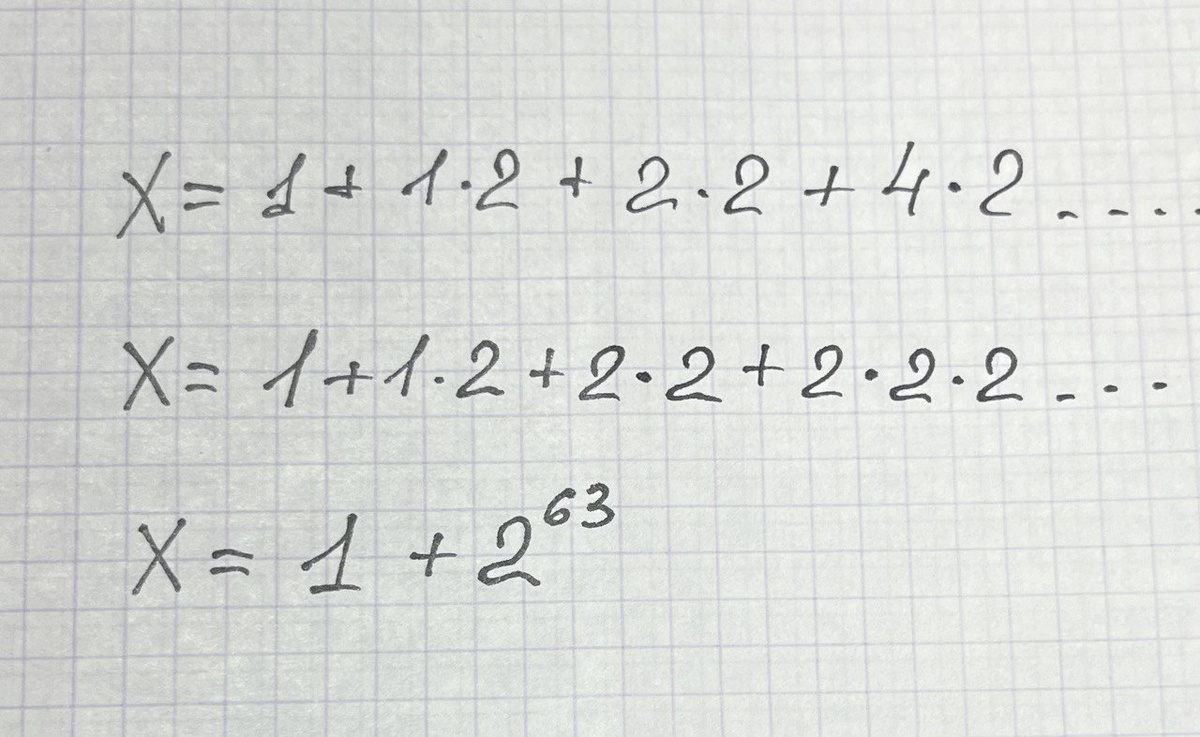 X = 1 + 1·2 + 2·2 + 4·2 ....
X = 1 + 1·2 + 2·2 + 2·2·2 ...
X = 1 + 2⁶³